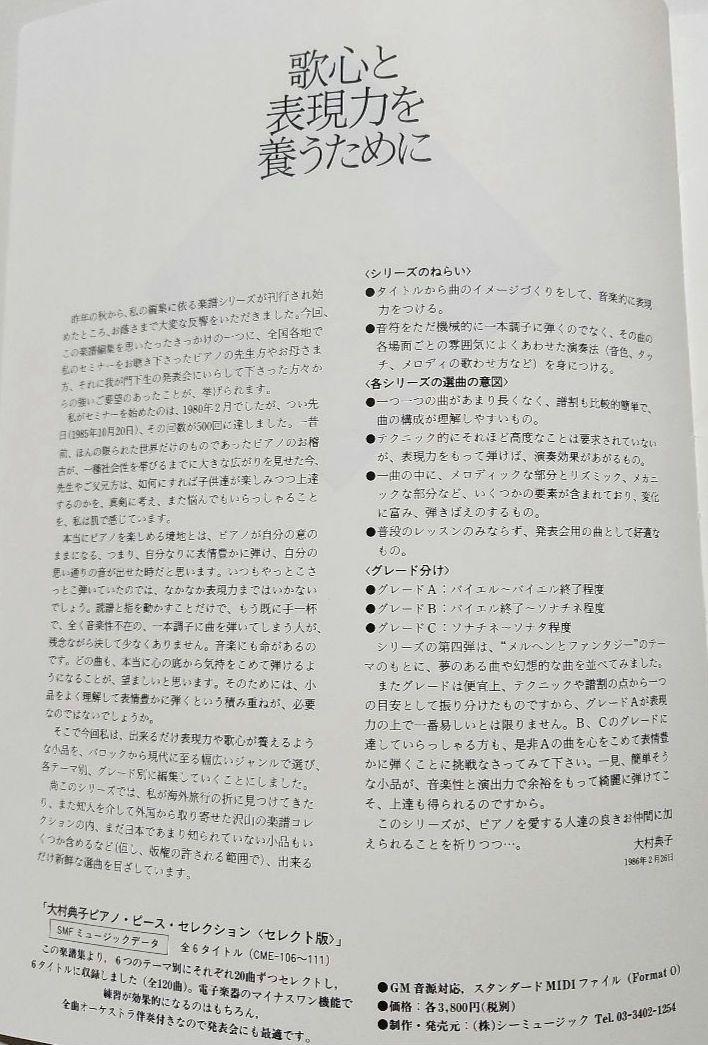 歌心と
表現力を
養うために
昨年の秋から、私の編集に依る楽譜シリーズが刊行され始
めたところ、お蔭さまで大変な反響をいただきました。今回、
この楽譜編集を思いたったきっかけの一つに、全国各地で
私のセミナーをお聴き下さったピアノの先生方やお母さま
方、それに我が門下生の発表会にいらして下さった方々か
らの強いご要望のあったことが、挙げられます。
私がセミナーを始めたのは、1980年2月でしたが、つい先
日(1985年10月20日)、その回数が500回に達しました。一昔
前、ほんの限られた世界だけのものであったピアノのお稽
古が、一種社会性を帯びるまでに大きな広がりを見せた今、
先生やご父兄方は、如何にすれば子供達が楽しみつつ上達
するのかを、真剣に考え、また悩んでもいらっしゃること
を、私は肌で感じています。
本当にピアノを楽しめる境地とは、ピアノが自分の意の
ままになる、つまり、自分なりに表情豊かに弾け、自分の
思い通りの音が出せた時だと思います。いつもやっとこさ
っとこ弾いていたのでは、なかなか表現力まではいかない
でしょう。読譜と指を動かすことだけで、もう既に手一杯
で、全く音楽性不在の、一本調子に曲を弾いてしまう人が、
残念ながら決して少なくありません。音楽にも命があるの
です。どの曲も、本当に心の底から気持をこめて弾けるよ
うになることが、望ましいと思います。そのためには、小
品をよく理解して表情豊かに弾くという積み重ねが、必要
なのではないでしょうか。
そこで今回私は、出来るだけ表現力や歌心が養えるよう
な小品を、バロックから現代に至る幅広いジャンルで選び、
各テーマ別、グレード別に編集していくことにしました。
尚このシリーズでは、私が海外旅行の折に見つけてきた
り、また知人を介して外国から取り寄せた沢山の楽譜コレ
クションの内、まだ日本であまり知られていない小品もい
くつか含めるなど(但し、版権の許される範囲で)、出来る
だけ新鮮な選曲を目ざしています。
〈シリーズのねらい〉
●タイトルから曲のイメージづくりをして、音楽的に表現
力をつける。
●音符をただ機械的に一本調子に弾くのでなく、その曲の
各場面ごとの雰囲気によくあわせた演奏法（音色、タッ
チ、メロディの歌わせ方など）を身につける。
〈各シリーズの選曲の意図〉
●一つ一つの曲があまり長くなく、譜割も比較的簡単で、
曲の構成が理解しやすいもの。
●テクニック的にそれほど高度なことは要求されていない
が、表現力をもって弾けば、演奏効果があがるもの。
●一曲の中に、メロディックな部分とリズミック、メカニ
ックな部分など、いくつかの要素が含まれており、変化
に富み、弾きばえのするもの。
●普段のレッスンのみならず、発表会用の曲として好適な
もの。
〈グレード分け〉
●グレードA：バイエル～バイエル終了程度
●グレードB：バイエル終了～ソナチネ程度
●グレードC：ソナチネ～ソナタ程度
シリーズの第四弾は、“メルヘンとファンタジー”のテー
マのもとに、夢のある曲や幻想的な曲を並べてみました。
またグレードは便宜上、テクニックや譜割の点から一つ
の目安として振り分けたものですから、グレードAが表現
力の上で一番易しいとは限りません。B、Cのグレードに
達していらっしゃる方も、是非Aの曲を心をこめて表情豊
かに弾くことに挑戦なさってみて下さい。一見、簡単そう
な小品が、音楽性と演出力で余裕をもって綺麗に弾けてこ
そ、上達も得られるのですから。
このシリーズが、ピアノを愛する人達の良きお仲間に加
えられることを祈りつつ…。
大村典子
1986年2月26日
「大村典子ピアノ・ピース・セレクション〈セレクト版〉」
SMFミュージックデータ 全6タイトル（CME-106～111）
この楽譜集より，6つのテーマ別にそれぞれ20曲ずつセレクトし，
6タイトルに収録しました（全120曲）。電子楽器のマイナスワン機能で
練習が効果的になるのはもちろん，
全曲オーケストラ伴奏付きなので発表会にも最適です。
●GM音源対応，スタンダードMIDIファイル（Format 0）
●価格：各3,800円(税別)
●制作・発売元：(株)シーミュージック Tel. 03-3402-1254